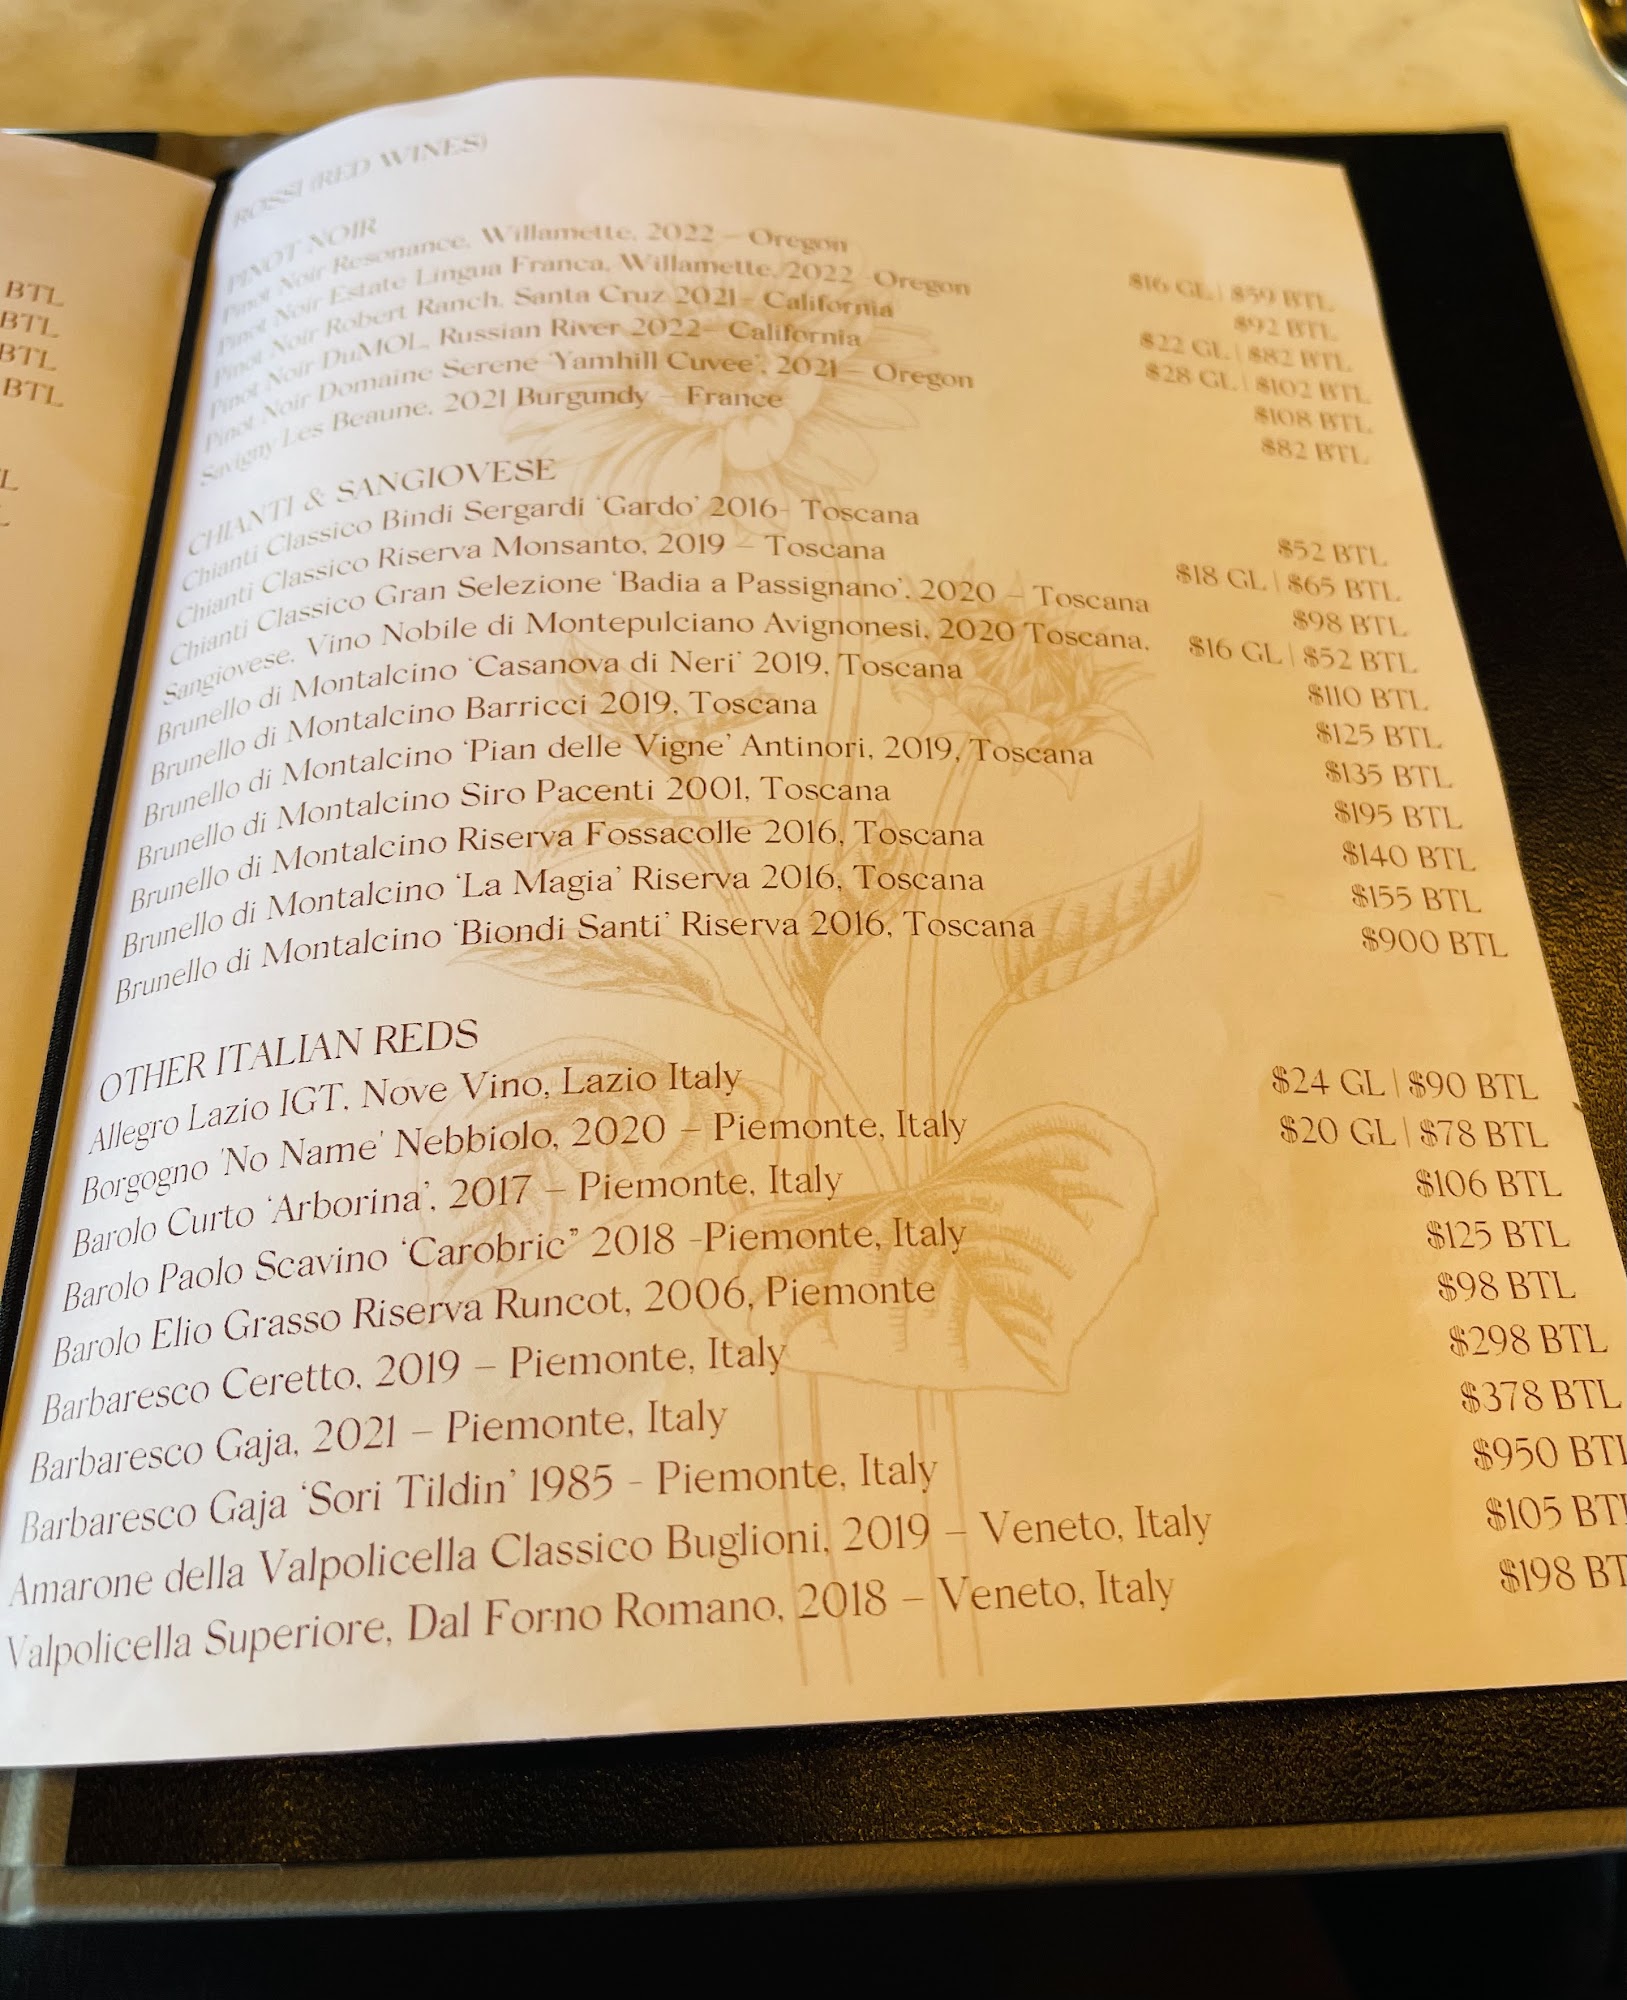 BTL
BTL
BTL
BTL
ROSSI (RED WINES)
PINOT NOIR
Pinot Noir Resonance, Willamette, 2022 – Oregon $16 GL | $59 BTL
Pinot Noir Estate Lingua Franca, Willamette, 2022 -Oregon $92 BTL
Pinot Noir Robert Ranch, Santa Cruz 2021- California $22 GL | $82 BTL
Pinot Noir DuMOL, Russian River 2022– California $28 GL | $102 BTL
Pinot Noir Domaine Serene 'Yamhill Cuvee', 2021 – Oregon $108 BTL
Savigny Les Beaune, 2021 Burgundy – France $82 BTL
CHIANTI & SANGIOVESE
Chianti Classico Bindi Sergardi ‘Gardo’ 2016- Toscana $52 BTL
Chianti Classico Riserva Monsanto, 2019 – Toscana $18 GL | $65 BTL
Chianti Classico Gran Selezione ‘Badia a Passignano’, 2020 – Toscana $98 BTL
Sangiovese, Vino Nobile di Montepulciano Avignonesi, 2020 Toscana, $16 GL | $52 BTL
Brunello di Montalcino ‘Casanova di Neri’ 2019, Toscana $110 BTL
Brunello di Montalcino Barricci 2019, Toscana $125 BTL
Brunello di Montalcino ‘Pian delle Vigne’ Antinori, 2019, Toscana $135 BTL
Brunello di Montalcino Siro Pacenti 2001, Toscana $195 BTL
Brunello di Montalcino Riserva Fossacolle 2016, Toscana $140 BTL
Brunello di Montalcino ‘La Magia’ Riserva 2016, Toscana $155 BTL
Brunello di Montalcino ‘Biondi Santi’ Riserva 2016, Toscana $900 BTL
OTHER ITALIAN REDS
Allegro Lazio IGT, Nove Vino, Lazio Italy $24 GL | $90 BTL
Borgogno 'No Name' Nebbiolo, 2020 – Piemonte, Italy $20 GL | $78 BTL
Barolo Curto ‘Arborina’, 2017 – Piemonte, Italy $106 BTL
Barolo Paolo Scavino ‘Carobric” 2018 -Piemonte, Italy $125 BTL
Barolo Elio Grasso Riserva Runcot, 2006, Piemonte $98 BTL
Barbaresco Ceretto, 2019 – Piemonte, Italy $298 BTL
Barbaresco Gaja, 2021 – Piemonte, Italy $378 BTL
Barbaresco Gaja ‘Sori Tildin’ 1985 - Piemonte, Italy $950 BTL
Amarone della Valpolicella Classico Buglioni, 2019 – Veneto, Italy $105 BTL
Valpolicella Superiore, Dal Forno Romano, 2018 – Veneto, Italy $198 BT